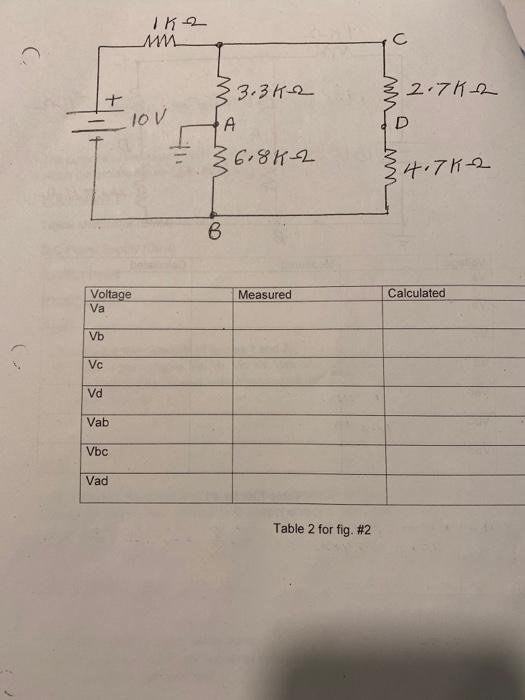 1KΩ
C
3.3KΩ
2.7KΩ
+
10V
A
D
6.8KΩ
4.7KΩ
B
Voltage Measured Calculated
Va
Vb
Vc
Vd
Vab
Vbc
Vad
Table 2 for fig. #2